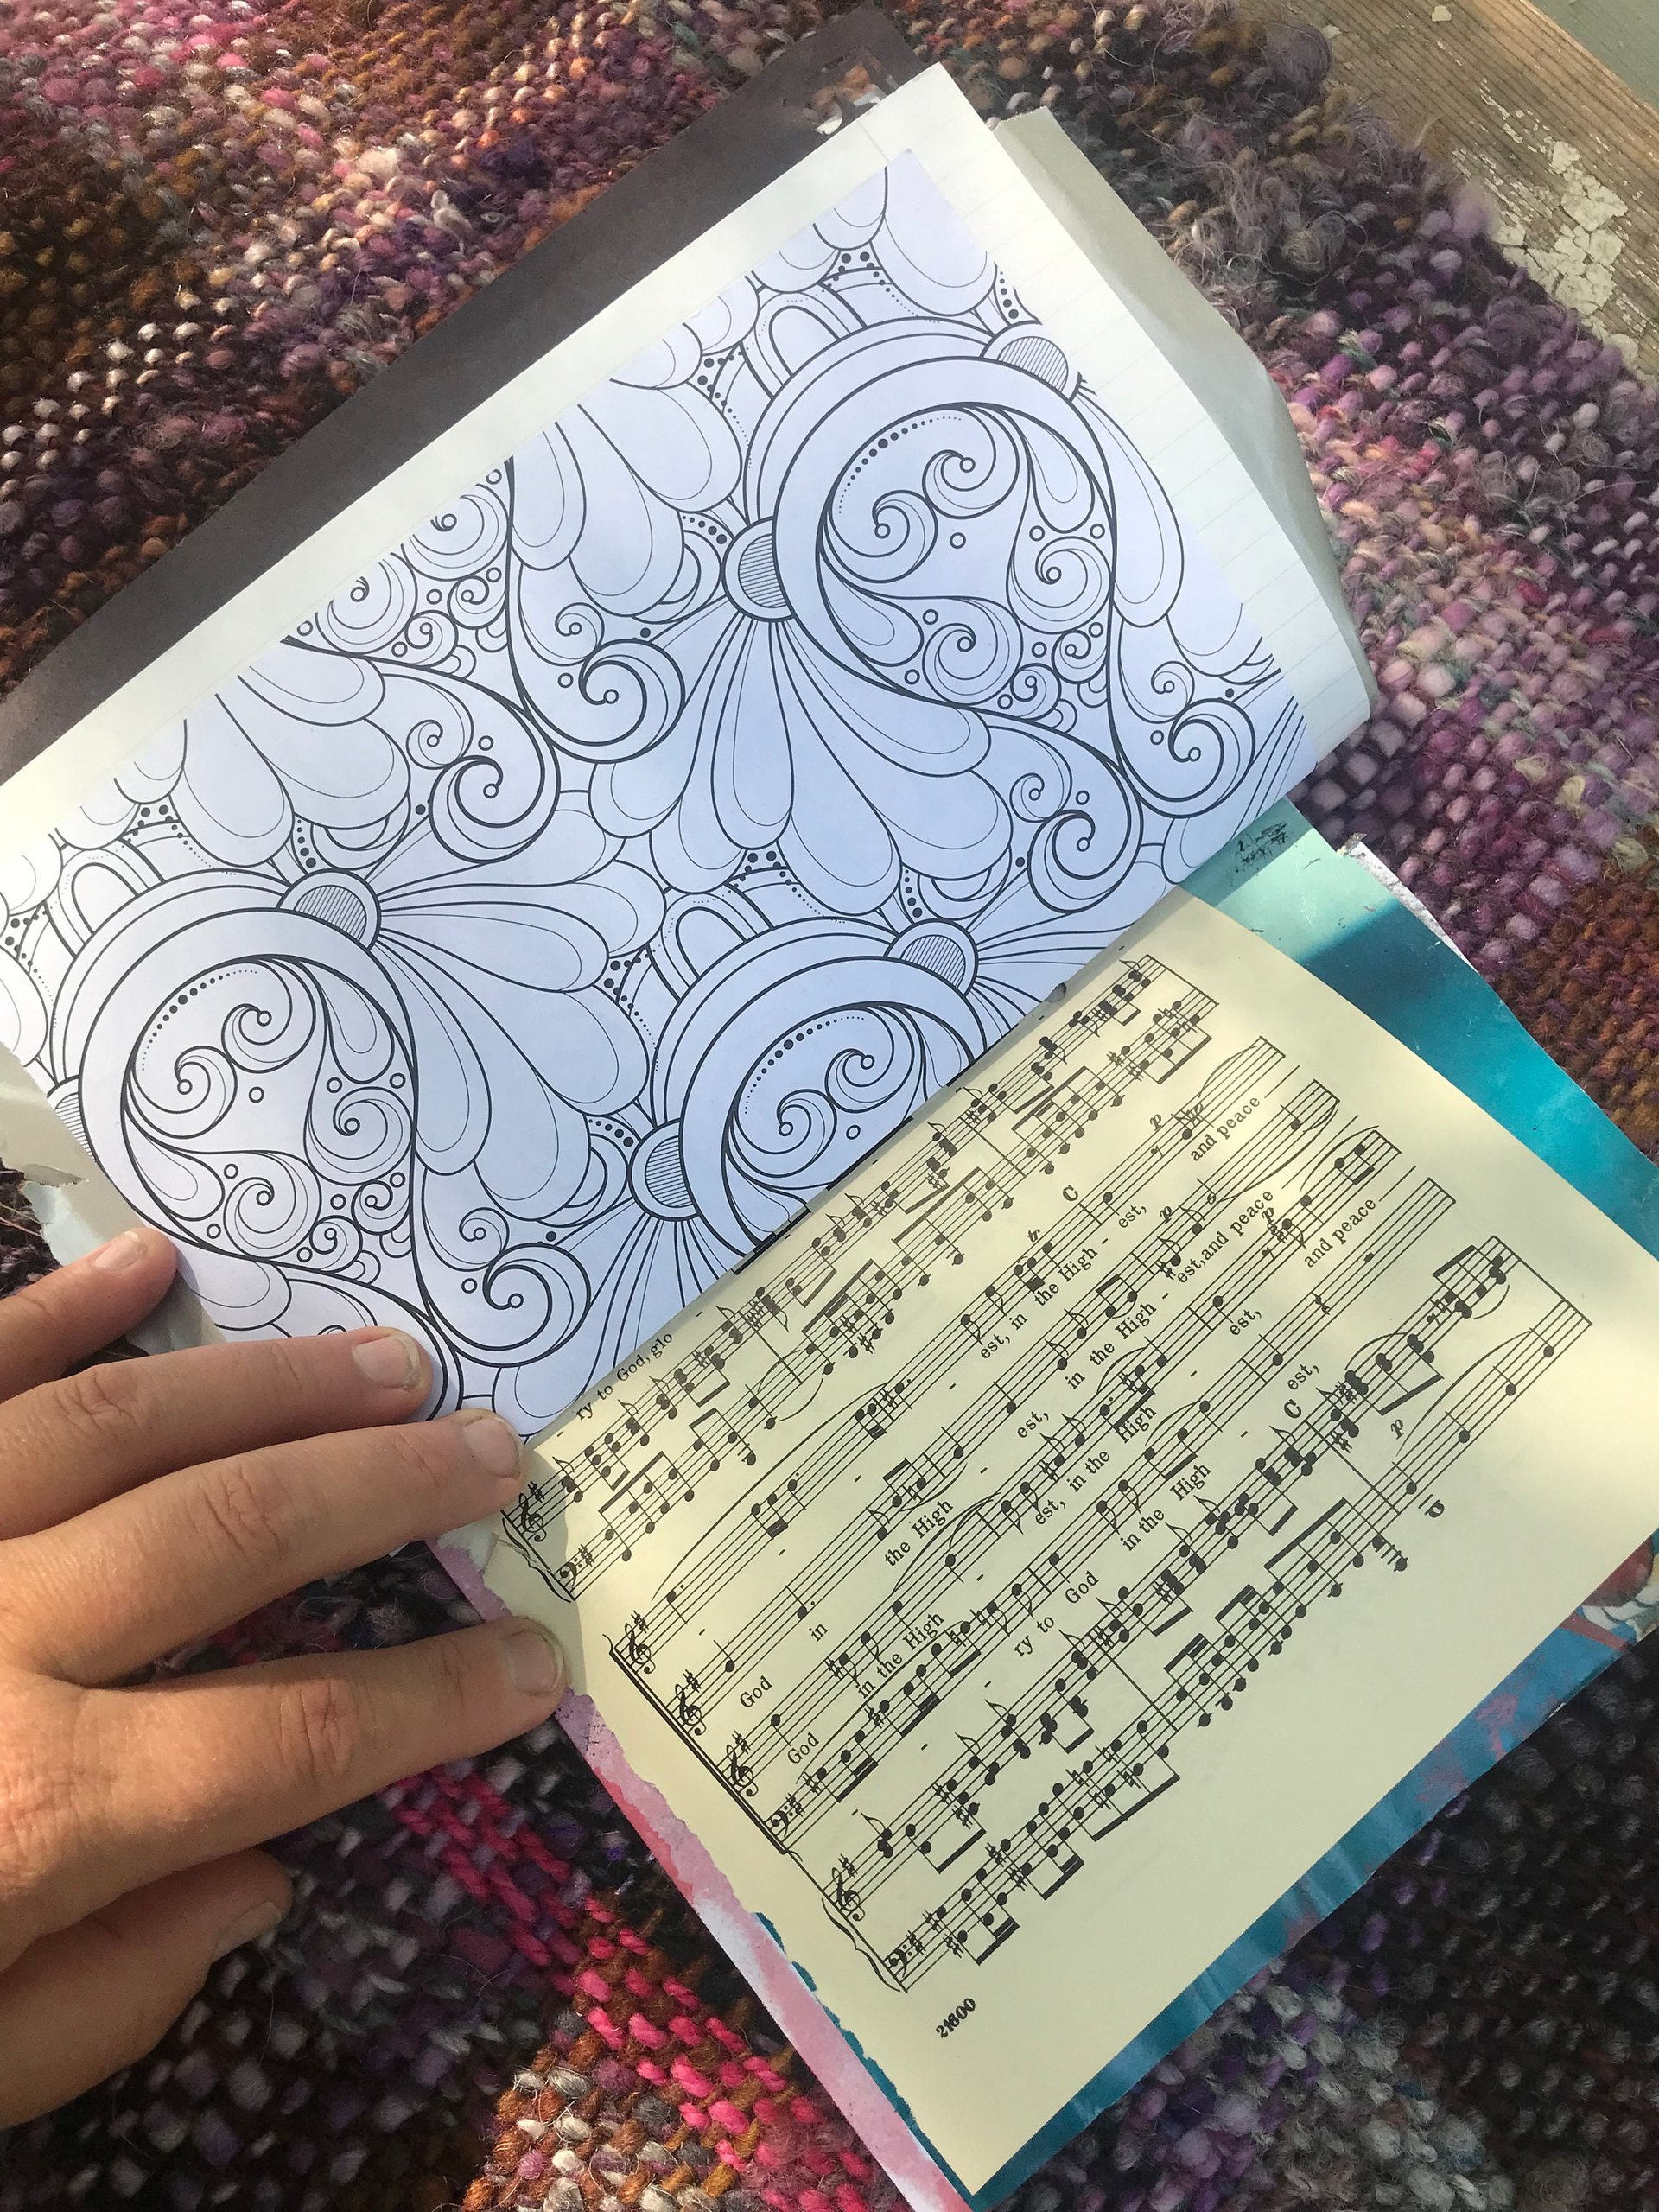 ry to God, glo - -
p
and peace
tr C
- est, in the High - est,
p
God - in - the High - est, in the High - est, and peace
p
God in the High - est, in the High - est, and peace
- ry to God in the High - est,
C
p
21600